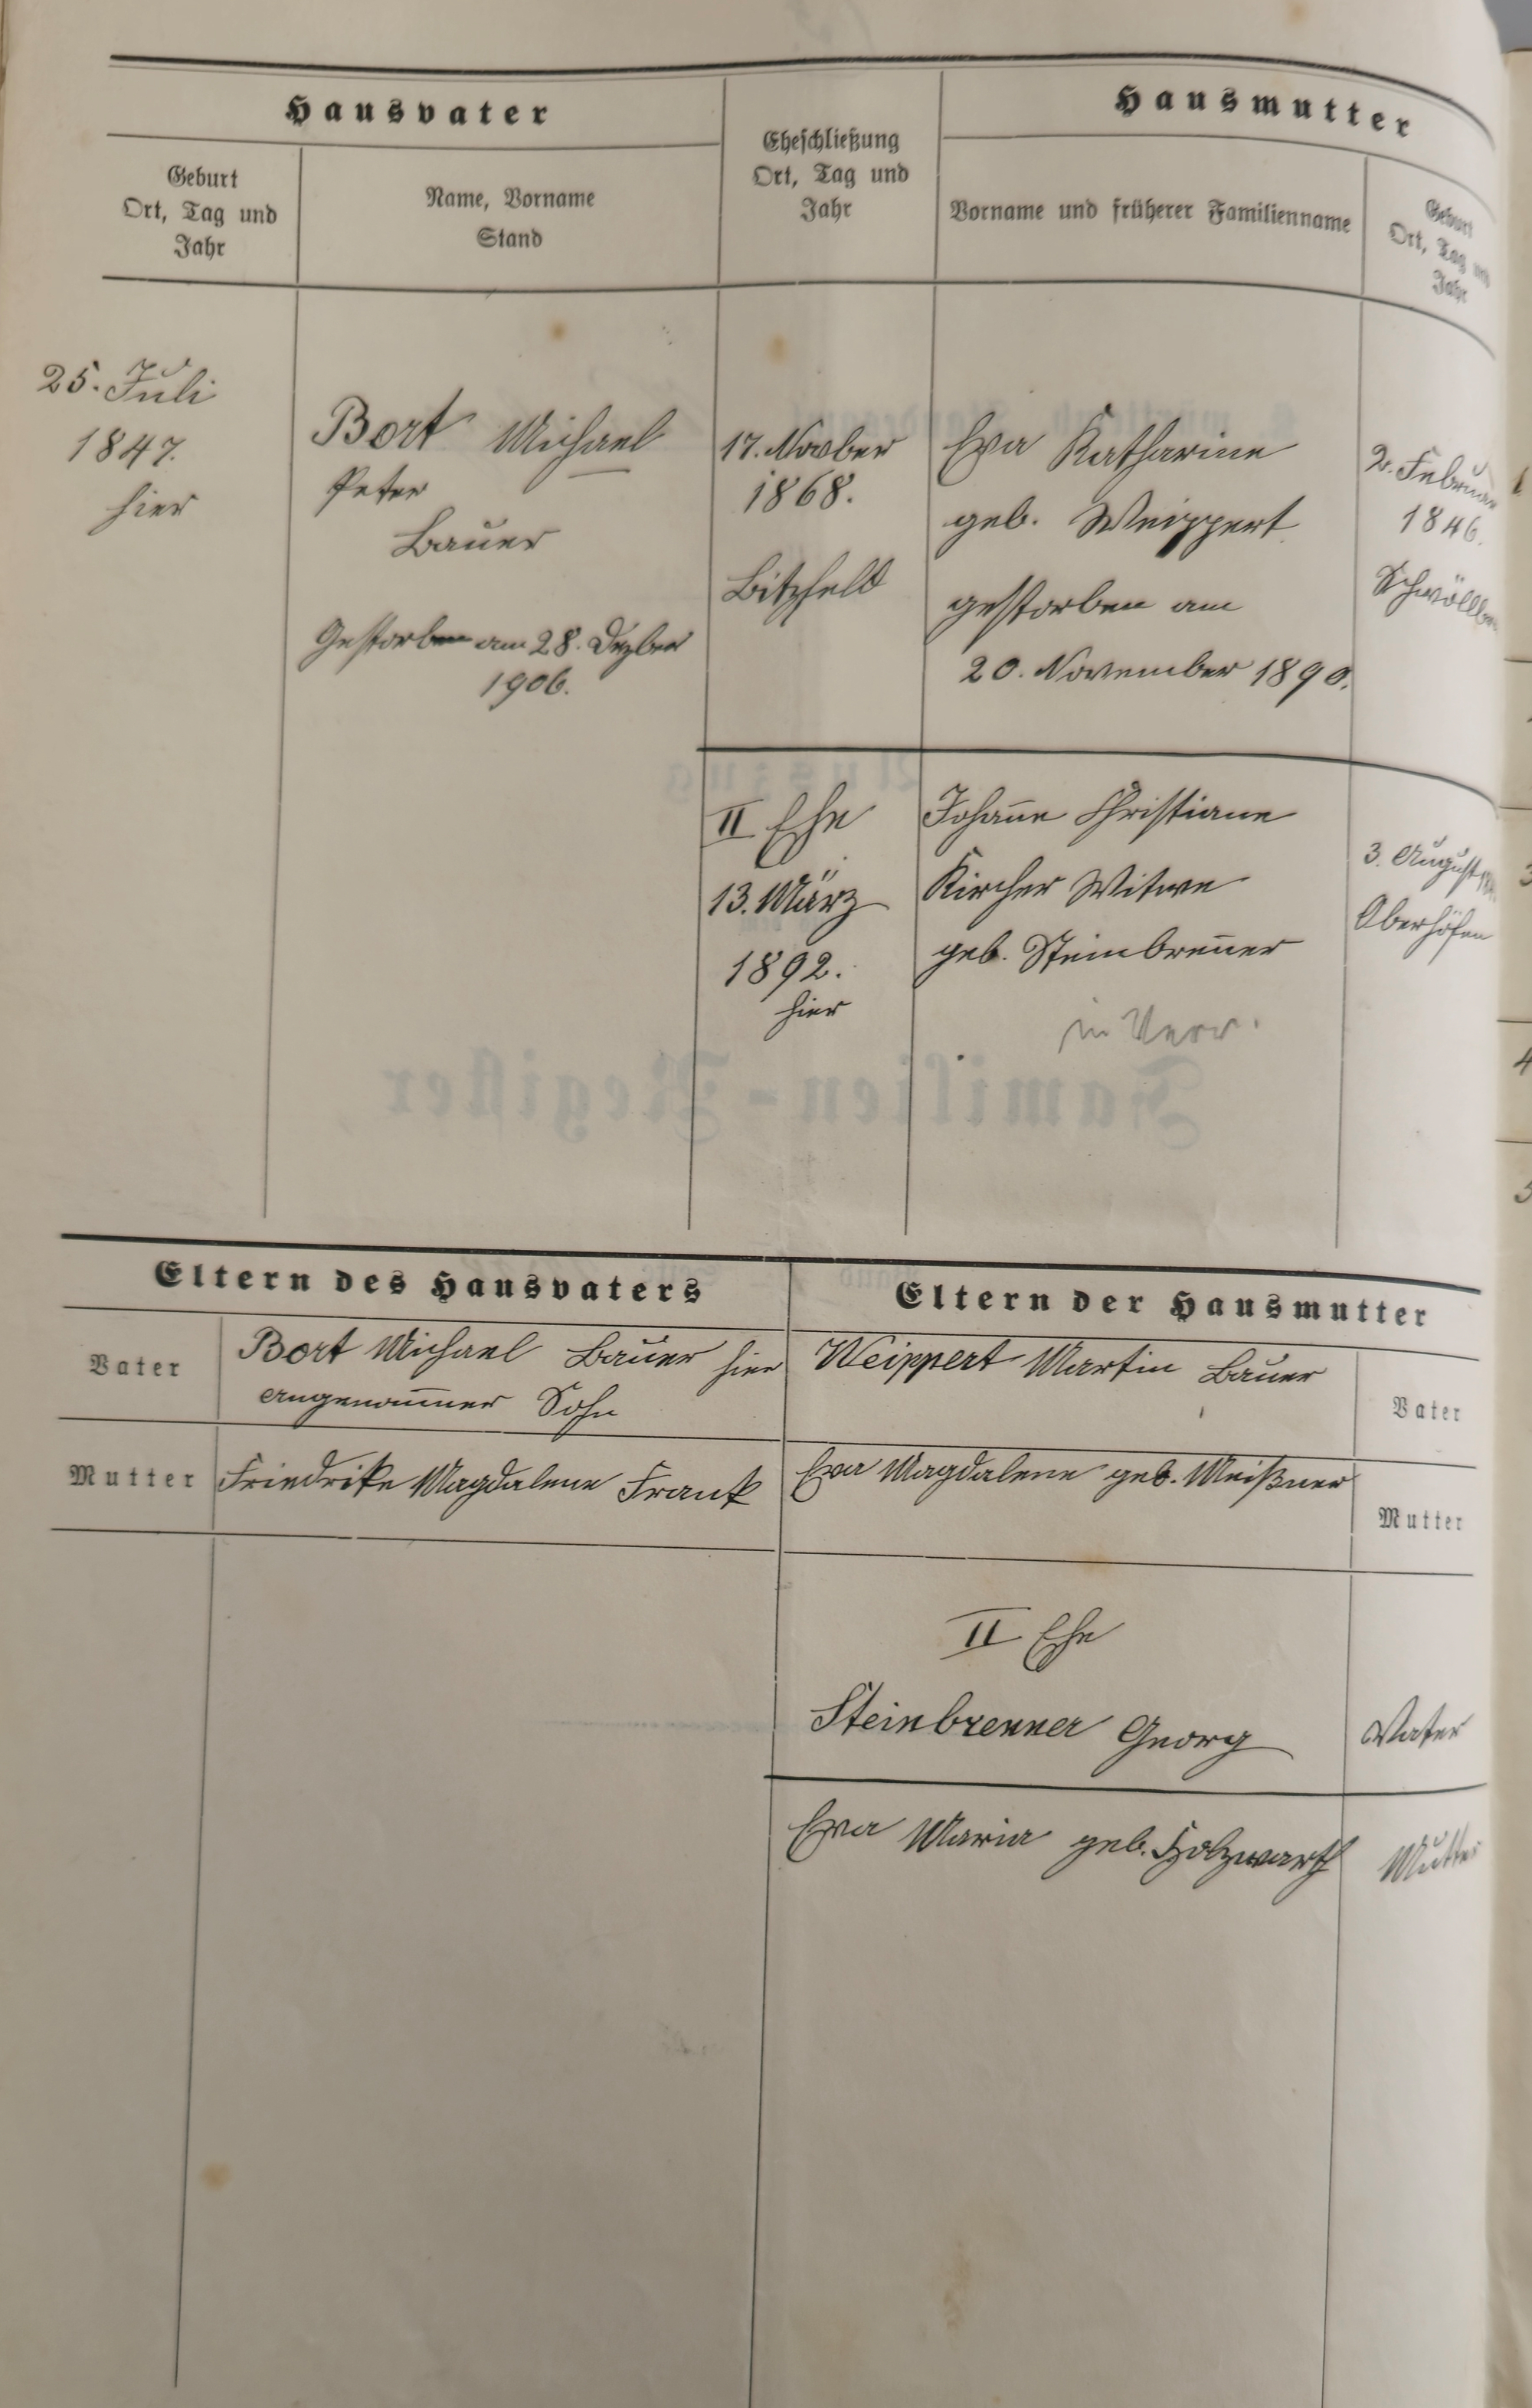 Hausvater
Geburt
Ort, Tag und
Jahr
Name, Vorname
Stand
Eheschließung
Ort, Tag und
Jahr
Hausmutter
Vorname und früherer Familienname
Geburt
Ort, Tag und
Jahr
25. Juli
1847.
hier
Bort Michael
Peter
Bauer
Gestorben am 28. Dezber
1906.
17. Novber
1868.
Bitzfeld
Eva Katharine
geb. Weippert
gestorben am
20. November 1890.
2. Februar
1846.
II Ehe
13. März
1892.
hier
Johan̄e Christiane
Kircher Witwe
geb. Steinbren̄er
in
3. August
Oberhöfen
Familien-Register
Eltern des Hausvaters
Vater
Bort Michael Bauer hier
angenom̄ner Sohn
Mutter
Friedrike Magdalene Frank
Eltern der Hausmutter
Weippert Martin Bauer
Vater
Eva Magdalene geb. Meißner
Mutter
II Ehe
Steinbrenner Georg
Vater
Eva Maria geb. Holzwarth
Mutter